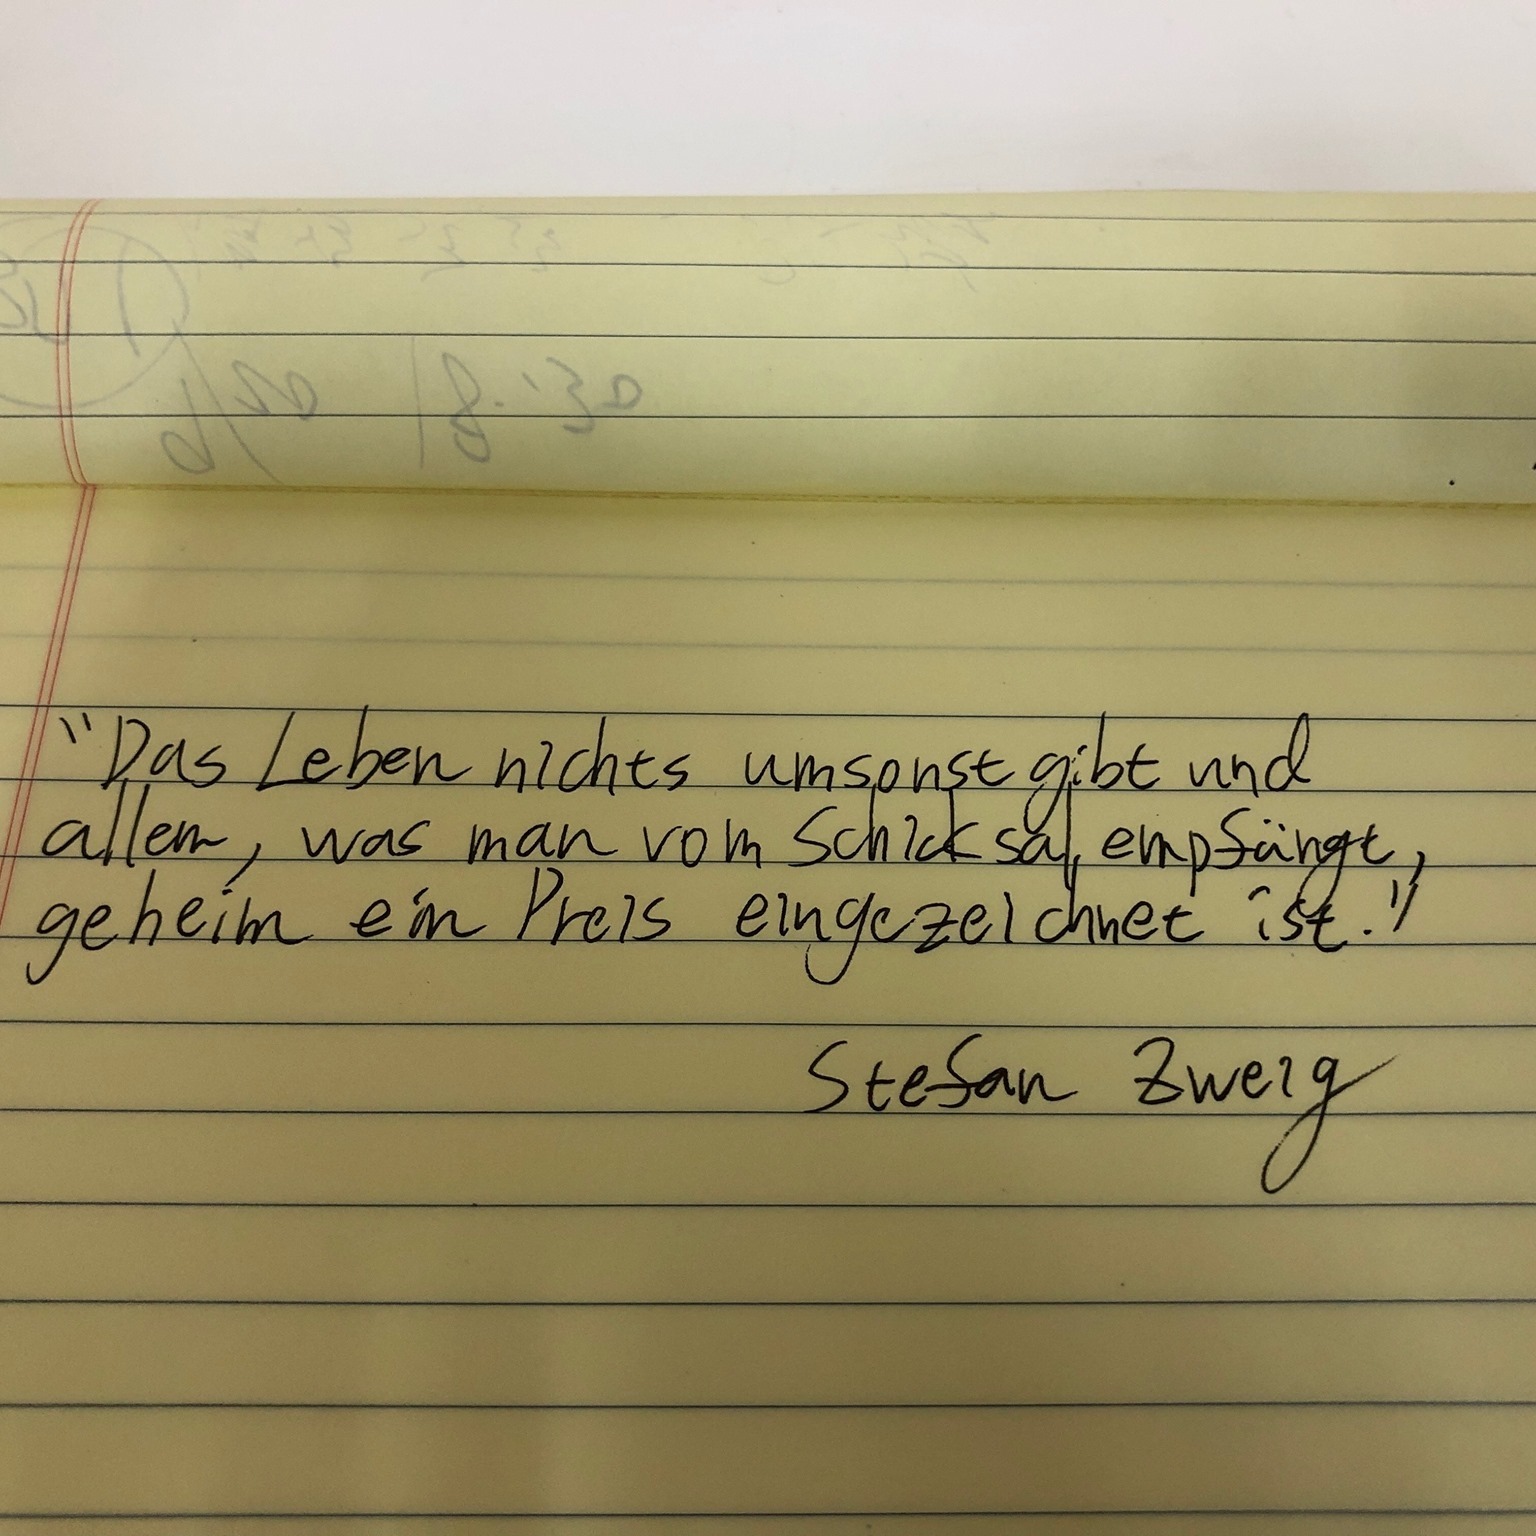 "Das Leben nichts umsonst gibt und
allem, was man vom Schicksal empfängt,
geheim ein Preis eingezeichnet ist."
Stefan Zweig